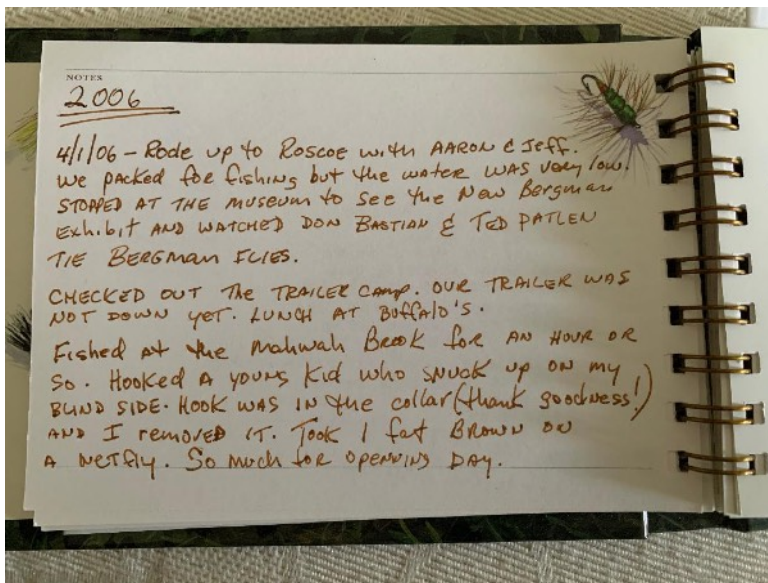 NOTES
2006
4/1/06 - Rode up to Roscoe with AARON & Jeff.
We packed for fishing but the water was very low.
STOPPED AT THE MUSEUM to See the New Bergman
Exhibit AND WATCHED DON BASTIAN & TED PATLEN
TIE BERGMAN FLIES.
CHECKED OUT The TRAILER CAMP. OUR TRAILER WAS
NOT DOWN YET. LUNCH AT BUFFALO'S.
Fished at the Mahwah Brook for AN HOUR OR
So. HOOKED A YOUNG Kid who SNUCK up ON my
BLIND SIDE. HOOK WAS IN the collar (thank goodness!)
AND I removed IT. Took 1 fat BROWN ON
A WETFLY. So much for OPENING DAY.